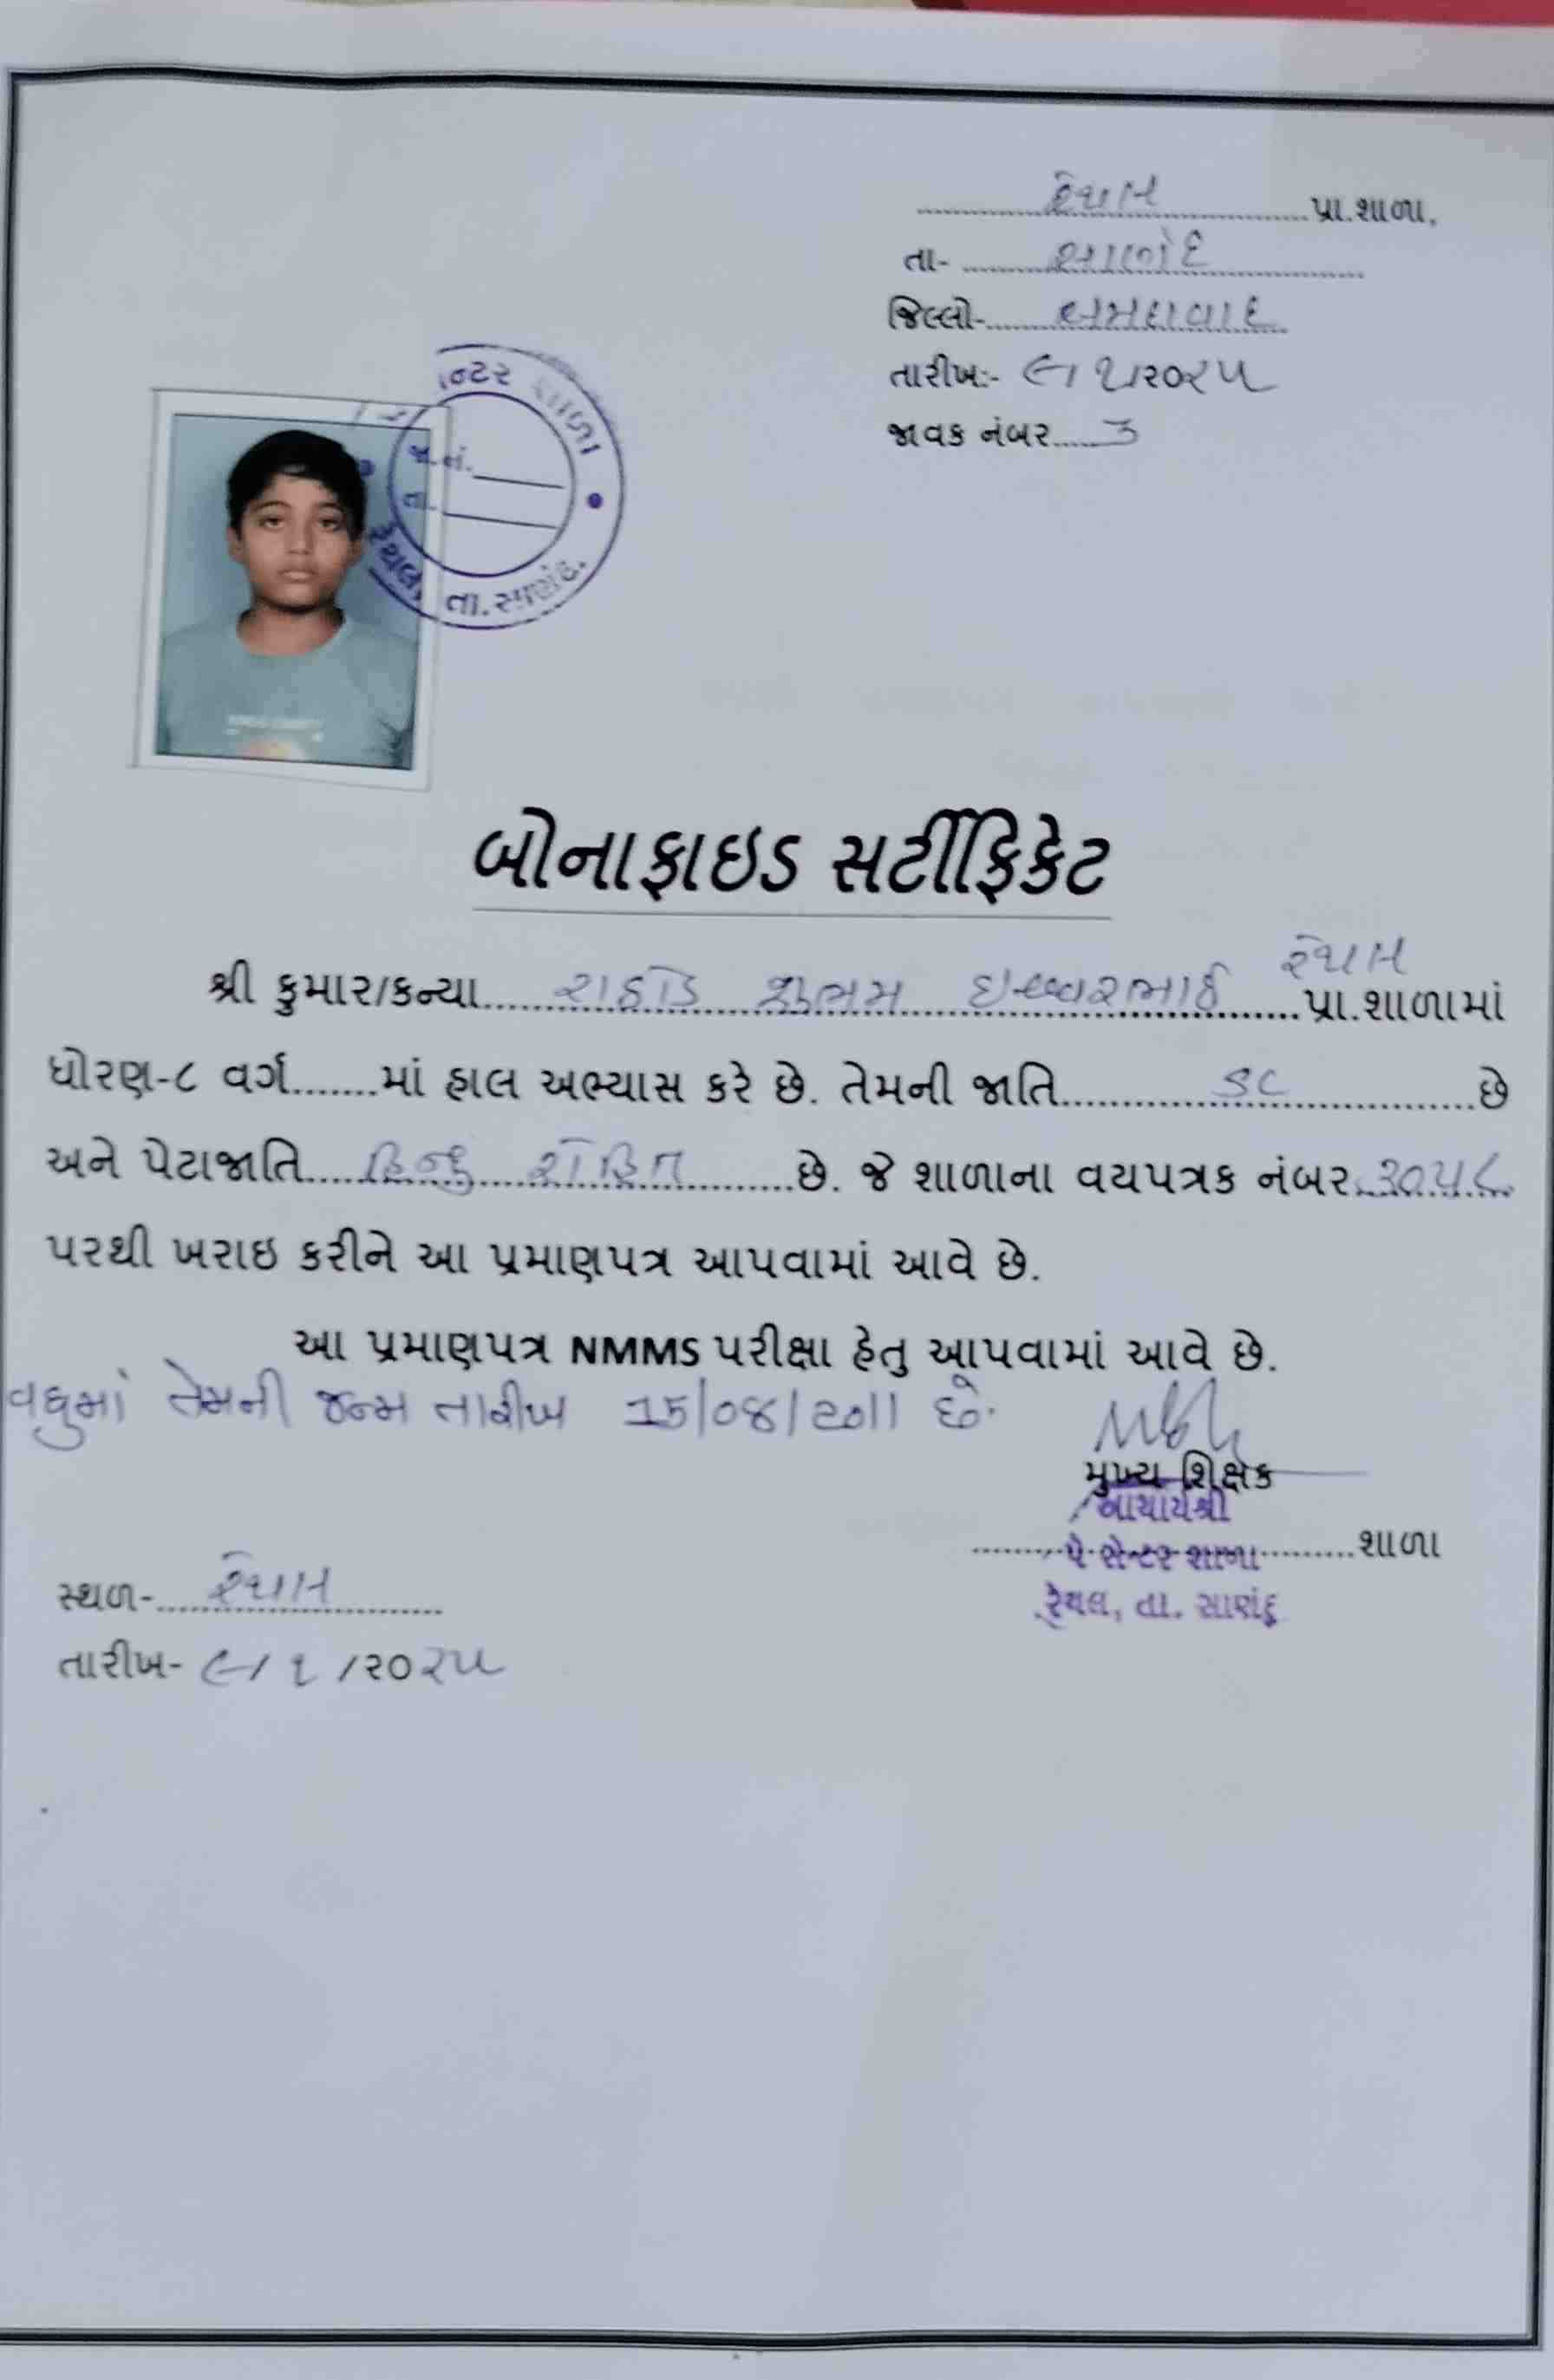 રેથલ પ્રા.શાળા,
તા- સાણંદ
જિલ્લો- અમદાવાદ
તારીખ:- ૯/૧/૨૦૨૫
જાવક નંબર 3
ન્ટર શાળા
જા.નં.
તા.
રેથલ, તા.સાણંદ.
બોનાફાઇડ સર્ટીફિકેટ
રેથલ
શ્રી કુમાર/કન્યા રાઠોડ શુભમ ઇશ્વરભાઈ પ્રા.શાળામાં
ધોરણ-૮ વર્ગ.......માં હાલ અભ્યાસ કરે છે. તેમની જાતિ SC છે
અને પેટાજાતિ હિન્દુ રોહિત છે. જે શાળાના વયપત્રક નંબર ૩૦૫૮
પરથી ખરાઇ કરીને આ પ્રમાણપત્ર આપવામાં આવે છે.
આ પ્રમાણપત્ર NMMS પરીક્ષા હેતુ આપવામાં આવે છે.
વધુમાં તેમની જન્મ તારીખ 15/08/2011 છે.
મુખ્ય શિક્ષક
આચાર્યશ્રી
પે સેન્ટર શાળા શાળા
રેથલ, તા. સાણંદ
સ્થળ- રેથલ
તારીખ- ૯/૧/૨૦૨૫